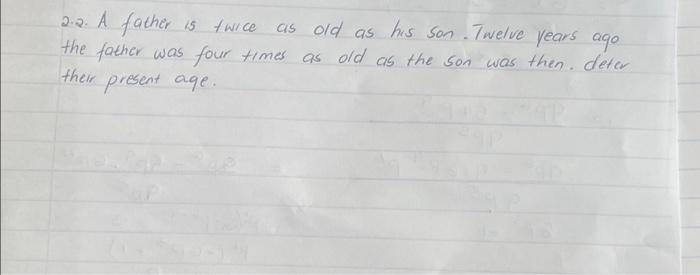 2.2. A father is twice as old as his son. Twelve years ago
the father was four times as old as the son was then. deter
their present age.